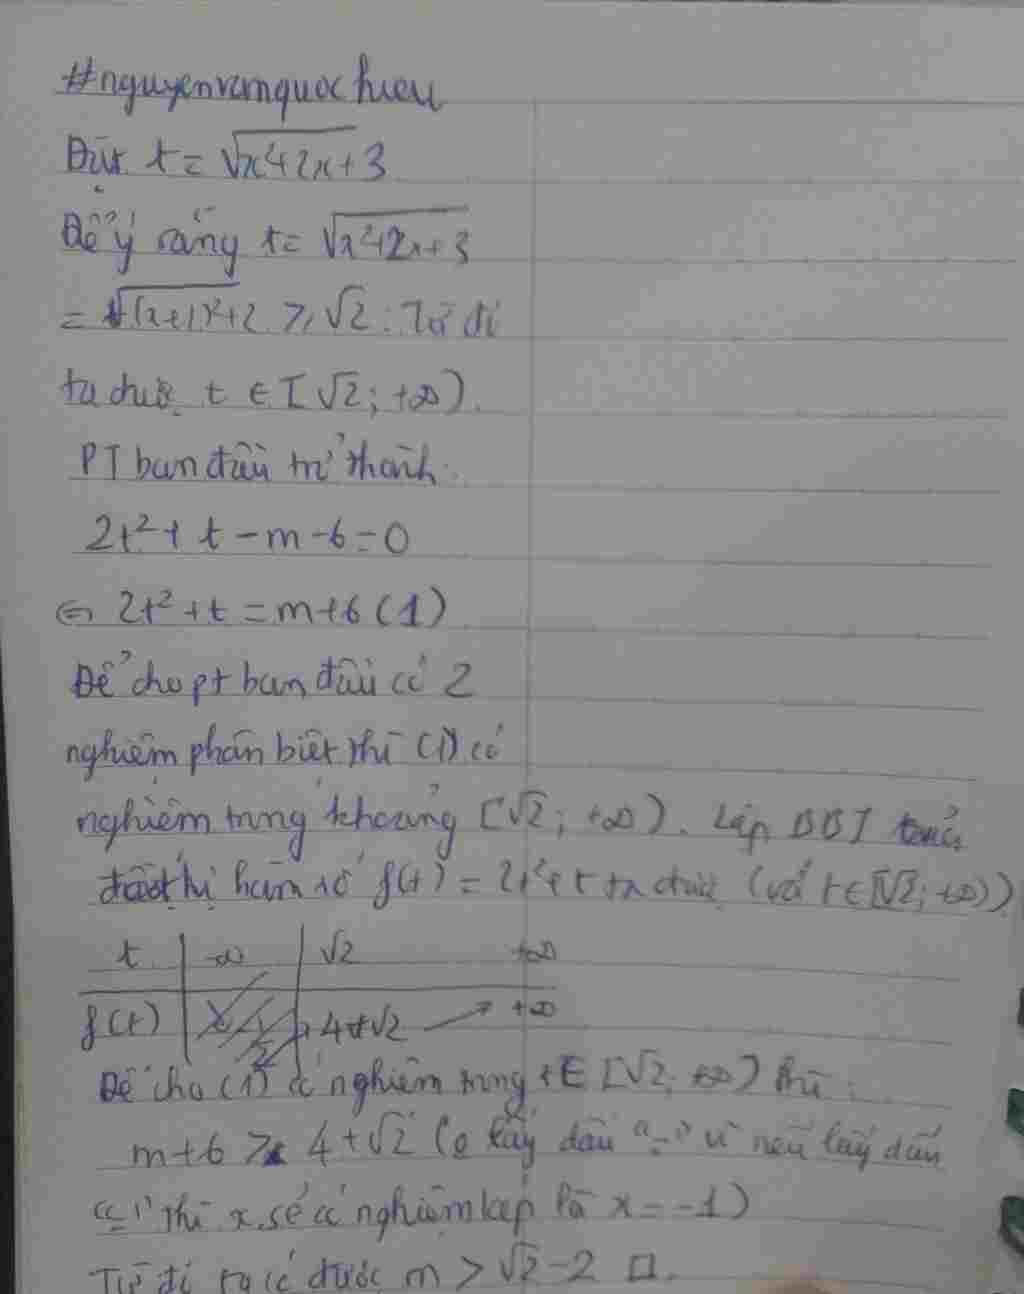 #nguyenvanquochieu
Đặt t = √x²+2x+3
Để ý rằng t = √x²+2x+3
= √(x+1)²+2 ≥ √2. Từ đó
ta được t ∈ [√2; +∞).
PT ban đầu trở thành:
2t² + t - m - 6 = 0
⇔ 2t² + t = m + 6 (1)
Để cho pt ban đầu có 2
nghiệm phân biệt thì (1) có
nghiệm trong khoảng [√2; +∞). Lập BBT
thị hàm số f(t) = 2t² + t ta được (với t ∈ [√2; +∞))
t -∞ √2 +∞
f(t) 4+√2 → +∞
Để cho (1) có nghiệm trong t ∈ [√2; +∞) thì:
m + 6 > 4 + √2 (o lấy dấu "=" vì nếu lấy dấu
"=" thì x sẽ có nghiệm kép là x = -1)
Từ đó ta có được m > √2 - 2 □.